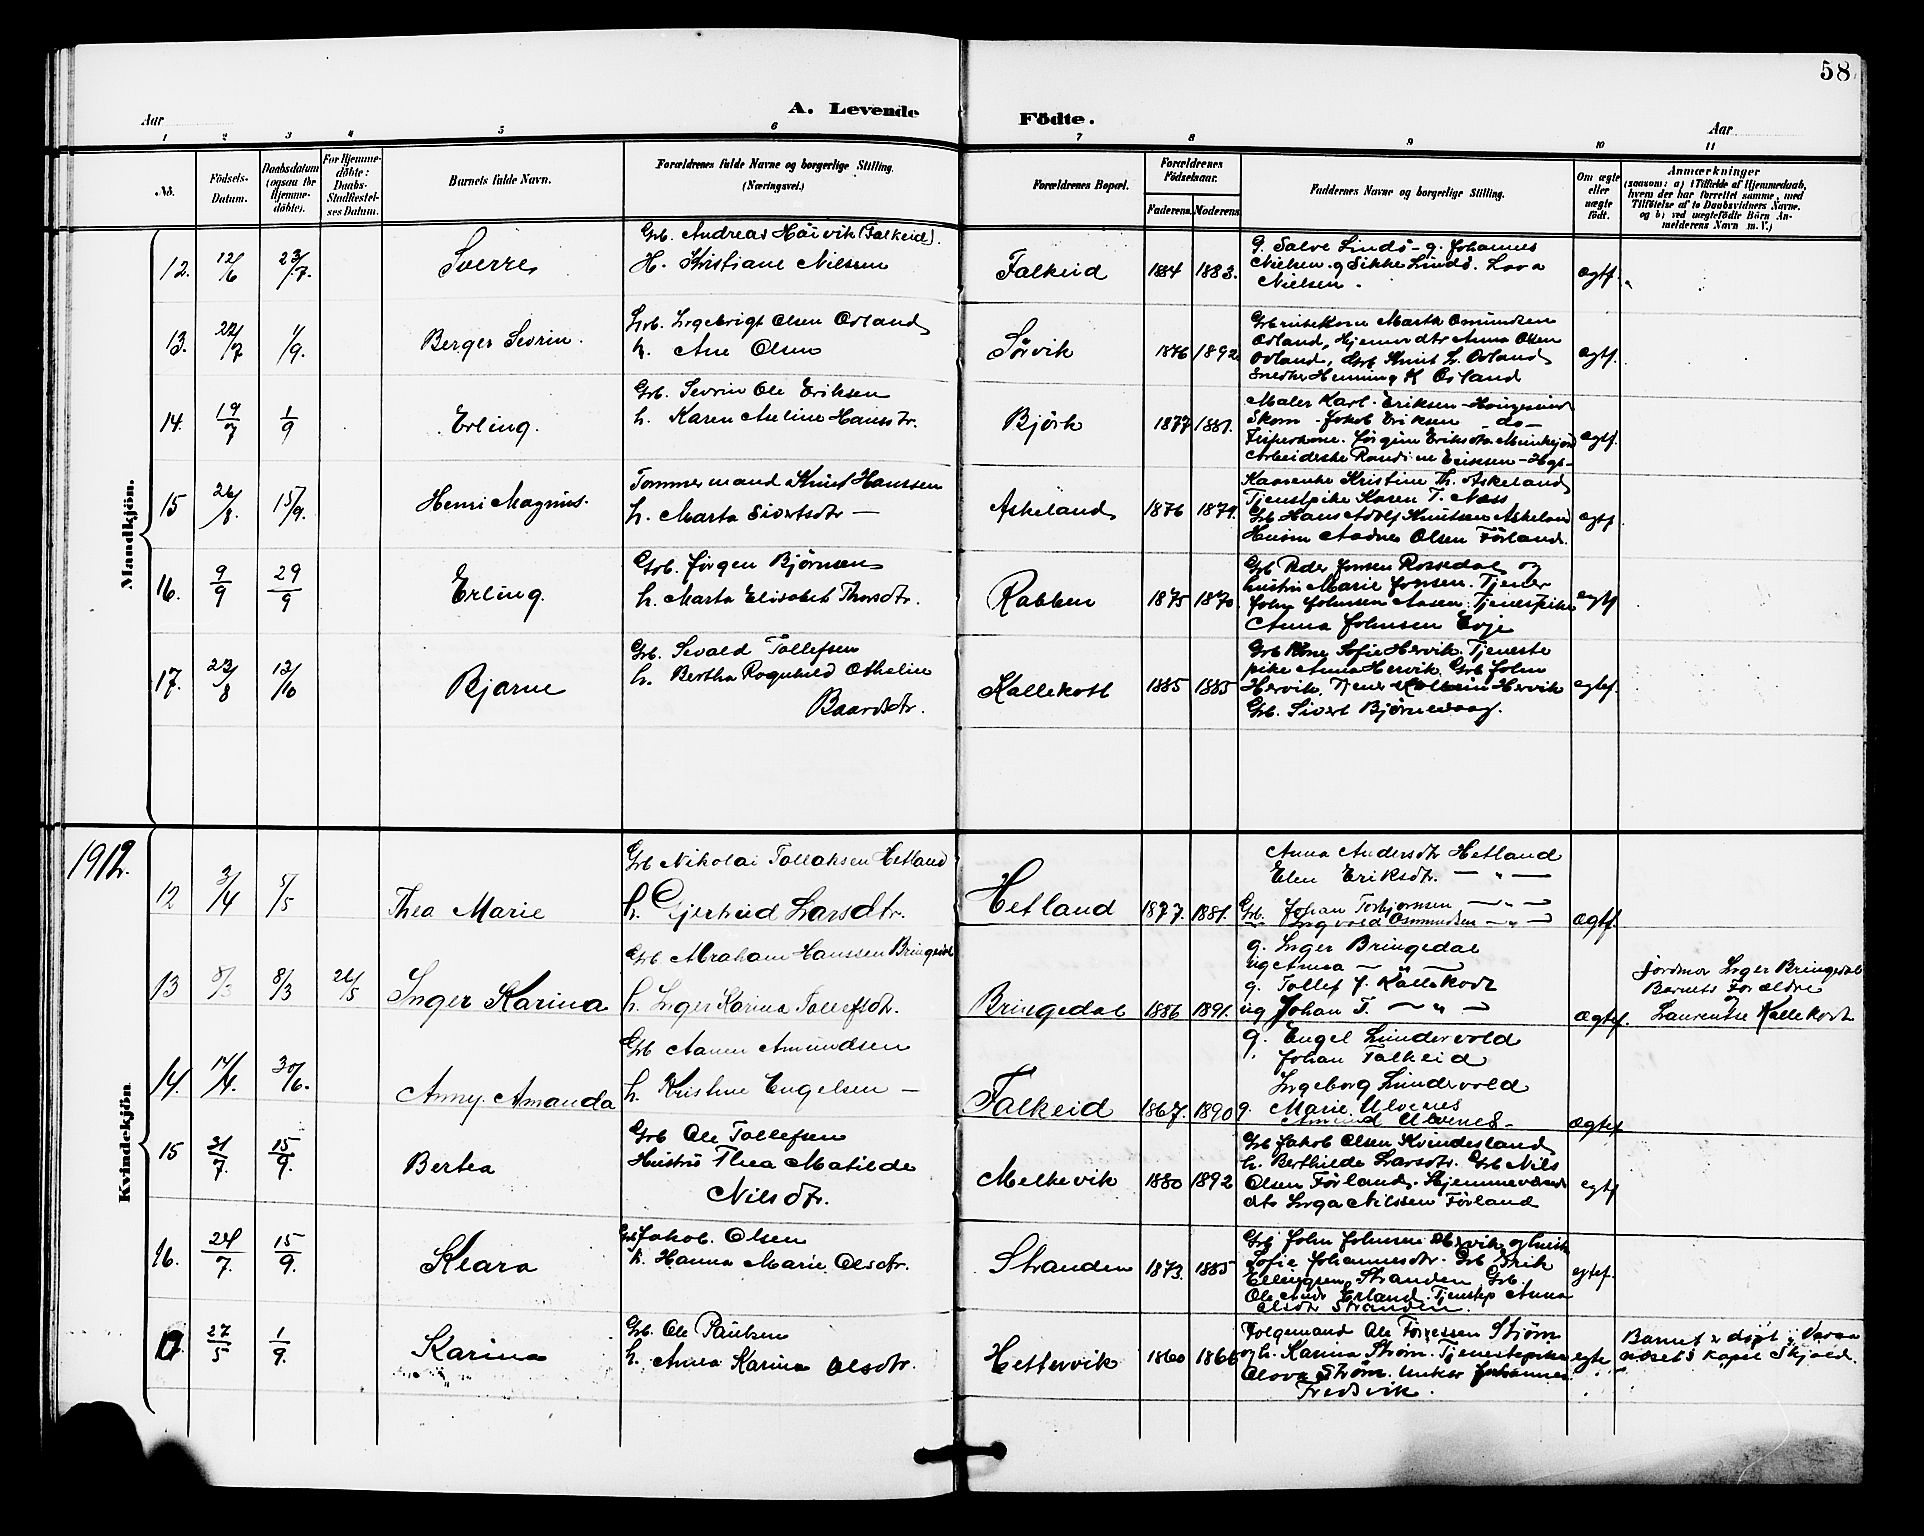 58
Aar
A. Levende Födte.
Aar
1 2 3 4 5 6 7 8 9 10 11
No.
Födsels-Datum.
Daabsdatum (ogsaa for Hjemme-döbte).
For Hjemme-döbte: Daabs-Stadfæstel-ses Datum.
Barnets fulde Navn.
Forældrenes fulde Navne og borgerlige Stilling. (Næringsvei.)
Forældrenes Bopæl.
Forældrenes Födselsaar.
Faderens. Moderens.
Faddernes Navne og borgerlige Stilling.
Om ægte eller uægte födt.
Anmærkninger
(saasom: a) i Tilfælde af Hjemmedaab, hvem der har forrettet samme, med Tilföielse af to Daabsvidners Navne, og b) ved uægtefödte Börn An-melderens Navn m. V.)
Mandkjön.
12. 12/6 23/7. Sverre
Grb. Andreas Höivik (Falkeid).
H. Kristiane Nilssen
Falkeid 1884 1883.
G. Salve Lindö - g. Johannes
Nielsen. g Sikke Lindö. Lova
Nielsen -
ægtf.
13. 22/7 1/9. Berger Sevrin.
Grb. Ingebrigt Olsen Ovland
h. Ane Olsen
Sörvik 1876 1892
Marta Omundsen
Ovland, Anna Olsen
Ovland, Grb Knut L. Ovland
Snedker Henning K Ovland
ægtf.
14. 19/7 1/9 Erling.
Grb. Sevrin Ole Eriksen
h. Karen Aeline Hansdtr.
Björk 1877 1881.
Maler Karl Eriksen - Haugesund
Skom - Jakob Eriksen - do -
Fiskerkone. Jörgine Eriksdtr.
Arbeiderske Randine Eriksen - Hgs -
ægtf.
15 26/8. 15/9. Henri Magnus.
Tømmermand Knut Hanssen
h. Marta Sivertsdtr -
Askeland 1876 1879.
Kristine Th. Askeland
Tjenstpike Karen T. Næss
Grb Hans Adolf Knutsen Askeland
Husm Aadnes Olsen Förland.
ægtf.
16. 9/9 29/9 Erling.
Grb. Jörgen Bjørnsen
h. Marta Elisabet Thorsdtr.
Rabben 1875 1870.
Grb Peder Jonsen Rossedal og
hustru Marie Jonsen. Tjener
John Johnsen Aasen. Tjenestpike
Anna Johnsen Evje
ægtf
17. 23/8 13/10 Bjarne
Grb. Sevald Tollefsen
h. Bertha Rognhild Otheline
Baardsdtr.
Kallekott 1885 1885
Grb Kone Sofie Hervik. Tjeneste
pike Anna Hervik. Grb John
Hervik. Tjener Kolbein Hervik
Grb. Sivert Bjørnevaag.
ægtef.
1912.
Kvindekjön
12 3/4 5/5 Thea Marie
Grb Nikolai Tollaksen Hetland
h. Gjertrud Larsdtr.
Hetland 1877. 1881.
Anna Andersdtr Hetland
Elen Eriksdtr. — " —
Grb. Johan Torbjornsen — " —
Ingvald Osmundsen — " —
Ægtf.
13 8/3 8/3 26/5 Inger Karina
Grb Abraham Hanssen Bringedal
h. Inger Karina Tollefsdtr.
Bringedal 1886 1891.
g. Inger Bringedal
ug Anna — " —
g. Tollef J. Kallekodt
ug Johan T. — " —
Ægtef.
Jordmor Inger Bringedal
Barnets Forældre
og
Laurentse Kallekodt
14. 14/4. 30/6. Anny. Amanda
Grb Aanen Amundsen
h. Kristine Engelsen -
Falkeid 1867. 1890
g. Engel Lindervold
Johan Falkeid
Ingeborg Lindervold
g. Marie Ulvenes
Amund Ulvenes -
Ægtef
15 31/7. 15/9. Bertea
Grb Ole Tollefsen
Hustru Thea Matilde
Nilsdtr.
Melkevik 1880 1892
Grb Jakob Olsen Kvindesland
h. Berthilde Larsdtr. Grb Nils
Olsen Förland. Hjemmeværende
dtr Inga Nilssen Förland
egtf
16. 24/7. 15/9. Klara
Grb Jakob. Olsen
h. Hanna Marie Olsdtr.
Stranden 1873. 1885
Grb John Johnsen Hervik og hust
Sofie Johannesdtr. Grb Erik
Ellingsen Stranden Grb.
Ole Ands Erland. Tjenstep Anna
Olsdtr Stranden.
egtef.
17. 27/5 1/9. Karina
Grb. Ole Paulsen
h. Anna Karina Olsdtr.
Hettervik 1860 1866
Folgemand Ole Torressen Strøm
og h. Karina Strøm. Tjenestepike
Olova Strøm. Johannes
Fredsvik.
egte
Barnet er döpt i Varaa
næsets kapel Skjold.